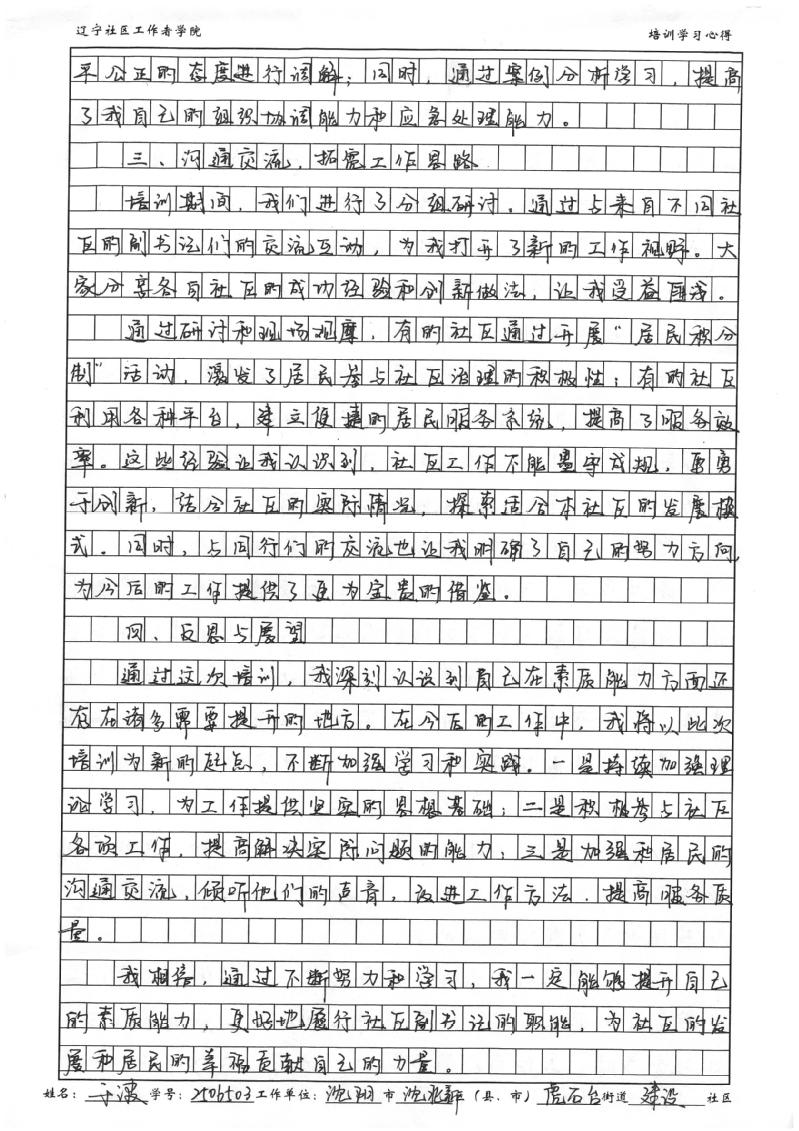 辽宁社区工作者学院 培训学习心得
平公正的态度进行调解；同时，通过案例分析学习，提高
了我自己的组织协调能力和应急处理能力。
三、沟通交流，拓宽工作思路
培训期间，我们进行了分组研讨。通过与来自不同社
区的副书记们的交流互动，为我打开了新的工作视野。大
家分享各自社区的成功经验和创新做法，让我受益匪浅。
通过研讨和现场观摩，有的社区通过开展“居民积分
制”活动，激发了居民参与社区治理的积极性；有的社区
利用各种平台，建立便捷的居民服务系统，提高了服务效
率。这些经验让我认识到，社区工作不能墨守成规，要勇
于创新，结合社区的实际情况，探索适合本社区的发展模
式。同时，与同行们的交流也让我明确了自己的努力方向，
为今后的工作提供了更为宝贵的借鉴。
四、反思与展望
通过这次培训，我深刻认识到自己在素质能力方面还
存在诸多需要提升的地方。在今后的工作中，我将以此次
培训为新的起点，不断加强学习和实践。一是持续加强理
论学习，为工作提供坚实的思想基础；二是积极参与社区
各项工作，提高解决实际问题的能力；三是加强和居民的
沟通交流，倾听他们的声音，改进工作方法，提高服务质
量。
我相信，通过不断努力和学习，我一定能够提升自己
的素质能力，更好地履行社区副书记的职能，为社区的发
展和居民的幸福贡献自己的力量。
姓名：于波 学号：2506503 工作单位：沈阳市沈北新区（县、市）虎石台街道 建设 社区